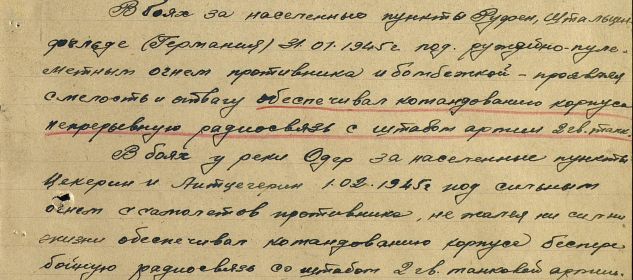 В боях за населенные пункты Руфен, Штальцен-
фельде (Германия) 31.01.1945г под ружейно-пуле-
метным огнем противника и бомбежкой – проявляя
смелость и отвагу обеспечивал командованию корпуса
непрерывную радиосвязь с штабом армии 2 гв. танк.
В боях у реки Одер за населенные пункты
Цекерин и Альтцечерин 1.02.1945г под сильным
огнем с самолетов противника, не жалея ни сил ни
жизни обеспечивал командованию корпуса беспере-
бойную радиосвязь со штабом 2 гв. танковой армии.